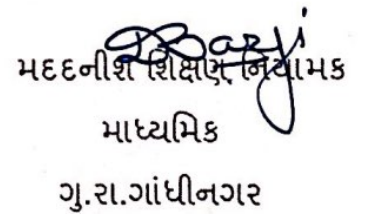 મદદનીશ શિક્ષણ નિયામક
માધ્યમિક
ગુ.રા.ગાંધીનગર